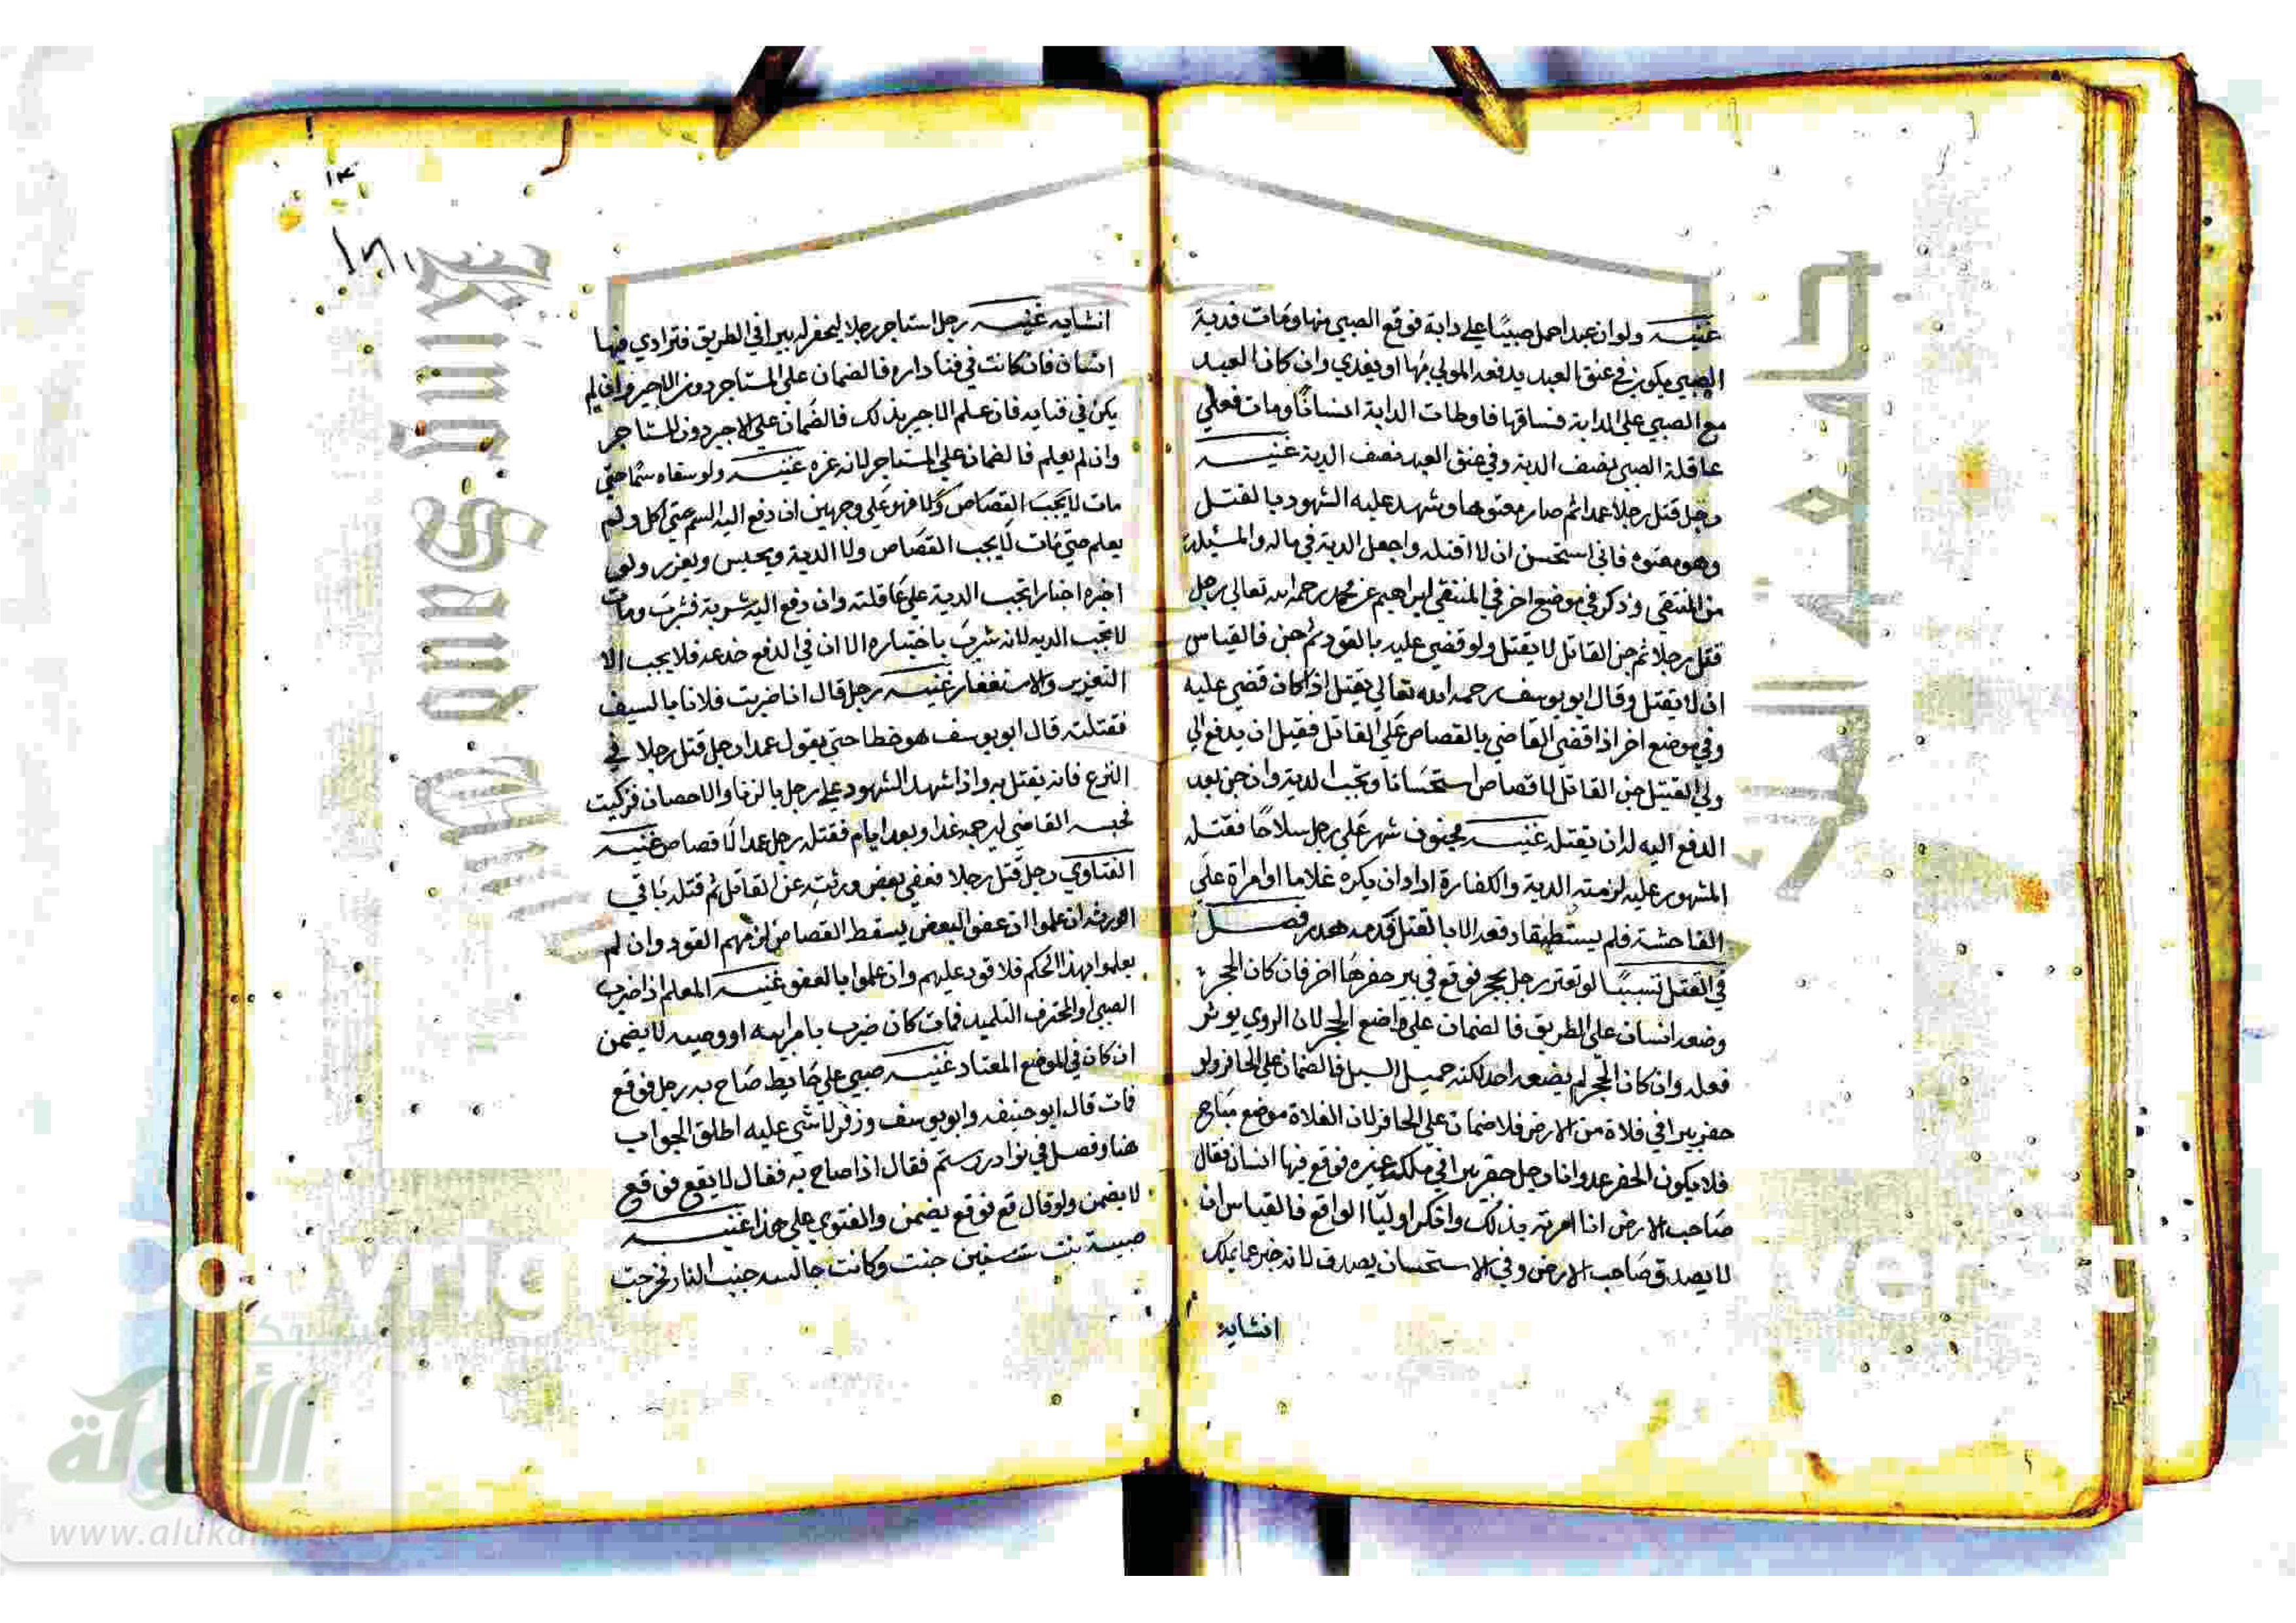 غنيـــه ولو ان عبدا حمل صبيا علي دابة فوقع الصبي منها ومات فدية
الصبي يكون في عنق العبد يدفعه المولي بها او يفدي وان كان العبد
مع الصبي علي الدابة فساقها فاوطات الدابة انسانا ومات فعلي
عاقلة الصبي نصف الدية وفي عنق العبد نصف الدية غنيـــه
رجل قتل رجلا عمدا ثم صار معتوها وشهد عليه الشهود بالقتل
وهو معتوه فاني استحسن ان لا اقتله واجعل الدية في ماله والمسيلة
من المنتقي وذكر في موضع اخر في المنتقي ابراهيم عن محمد رحمه الله تعالي رجل
قتل رجلا ثم جن القاتل لا يقتل ولو قضي عليه بالقود ثم جن فالقياس
ان لا يقتل وقال ابو يوسف رحمه الله تعالي يقتل اذا كان قضي عليه
وفي موضع اخر اذا قضي القاضي بالقصاص علي القاتل فقبل ان يدفع الي
ولي القتيل جن القاتل لا قصاص استحسانا وتجب الدية وان جن بعد
الدفع اليه له ان يقتله غنيـــه مجنون شهر علي رجل سلاحا فقتله
المشهور عليه لزمته الدية والكفارة اراد ان يكره غلاما او امراة علي
الفاحشة فلم يستطيعا دفعه الا بالقتل فدمه هدر فصــل
في القتل تسببا لو تعثر رجل بحجر فوقع في بير حفرها اخر فان كان الحجر
وضعه انسان علي الطريق فالضمان علي واضع الحجر لان الروي يوثر
فعله وان كان الحجر لم يضعه احد لكنه حميل السيل فالضمان علي الحافر ولو
حفر بيرا في فلاة من الارض فلا ضمان علي الحافر لان الفلاة موضع مباح
فلا يكون الحفر عدوانا رجل حفر بيرا في ملك غيره فوقع فيها انسان فقال
صاحب الارض انا امرته بذلك وانكر اوليا الواقع فالقياس ان
لا يصدق صاحب الارض وفي الاستحسان يصدق لانه خبر عما يملك
انشايه
١٣
١٣١
انشايه غنيـــه رجل استاجر رجلا ليحفر له بيرا في الطريق فتردي فيها
انسان فان كانت في فنا داره فالضمان علي المستاجر دون الاجير وان لم
يكن في فنايه فان علم الاجير بذلك فالضمان علي الاجير دون المستاجر
وان لم يعلم فالضمان علي المستاجر لانه غره غنيـــه ولو سقاه سما حتي
مات لا يجب القصاص فهو علي وجهين ان دفع اليه السم حتي اكل ولم
يعلم حتي مات لا يجب القصاص ولا الدية ويحبس ويعزر ولو
اجبره اجبارا تجب الدية علي عاقلته وان دفع اليه شربة فشرب ومات
لا تجب الديه لانه شرب باختياره الا ان في الدفع خدعه فلا يجب الا
التعزير والاستغفار غنيـــه رجل قال انا ضربت فلانا بالسيف
فقتلته قال ابو يوسف هو خطا حتي يقول عمدا رجل قتل رجلا في
النزع فانه يقتل به واذا شهد الشهود علي رجل بالزنا والاحصان فزكيت
فحبسه القاضي ليرجمه غدا وبعد ايام فقتله رجل عمدا لا قصاص غنيـــه
الفتاوي رجل قتل رجلا فعفي بعض ورثته عن القاتل ثم قتله باقي
الورثه ان علموا ان عفو البعض يسقط القصاص لزمهم القود وان لم
يعلموا بهذا الحكم فلا قود عليهم وان علموا بالعفو غنيـــه المعلم اذا ضرب
الصبي او المحترف التلميذ فمات كان ضرب بامر ابيه او وصيه لا يضمن
ان كان في الموضع المعتاد غنيـــه صبي علي حايط صاح به رجل فوقع
فمات قال ابو حنيفه وابو يوسف وزفر لا شي عليه اطلق الجواب
هنا وفصل في نوادر رستم فقال اذا صاح به فقال لا يقع فوقع
لا يضمن ولو قال قع فوقع يضمن والفتوي علي هذا غنيـــه
صبية بنت سنين جنت وكانت جالسه جنب النار فخرجت
جامعة الملك سعود
King Saud University
شبكة
الألوكة
www.alukah.net